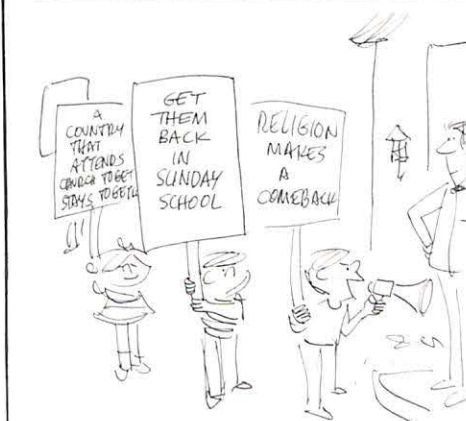 A
COUNTRY
THAT
ATTENDS
CHURCH TOGET
STAYS TOGETH
GET
THEM
BACK
IN
SUNDAY
SCHOOL
RELIGION
MAKES
A
COMEBACK